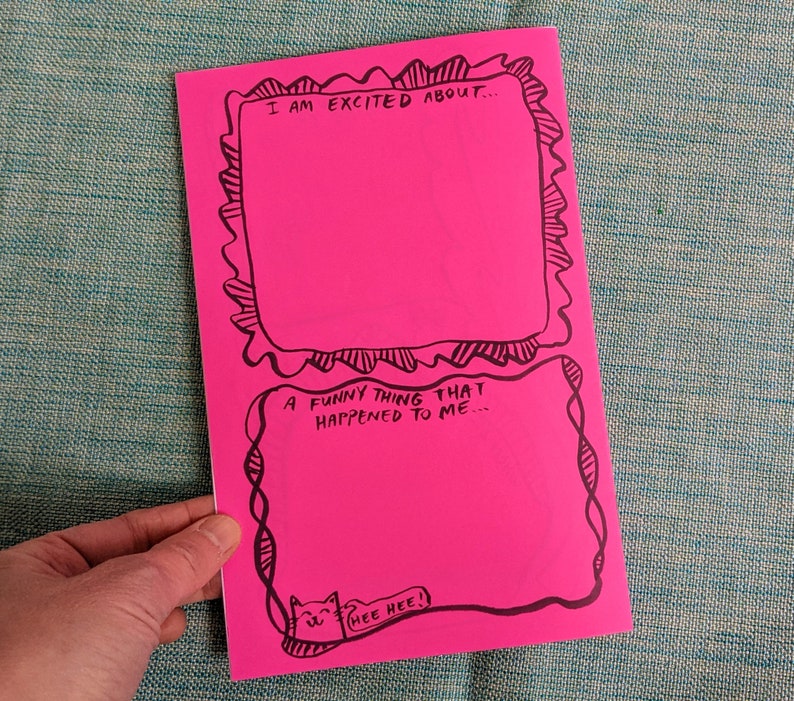 I AM EXCITED ABOUT...
A FUNNY THING THAT
HAPPENED TO ME...
HEE HEE!